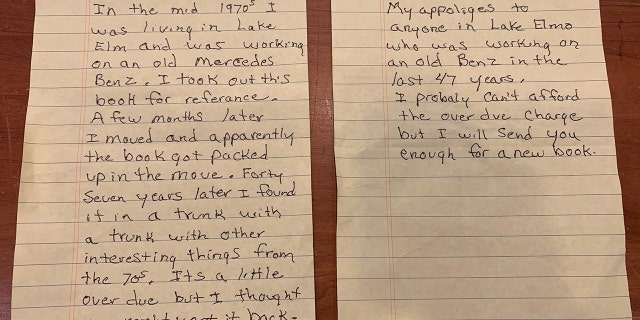 In the mid 1970s I
was living in Lake
Elm and was working
on an old Mercedes
Benz. I took out this
book for referance.
A few months later
I moved and apparently
the book got packed
up in the move. Forty
Seven years later I found
it in a trunk with
a trunk with other
interesting things from
the 70s. Its a little
over due but I thought
it back.
My appoliges to
anyone in Lake Elmo
who was working on
an old Benz in the
last 47 years.
I probaly can't afford
the over due charge
but I will send you
enough for a new book.